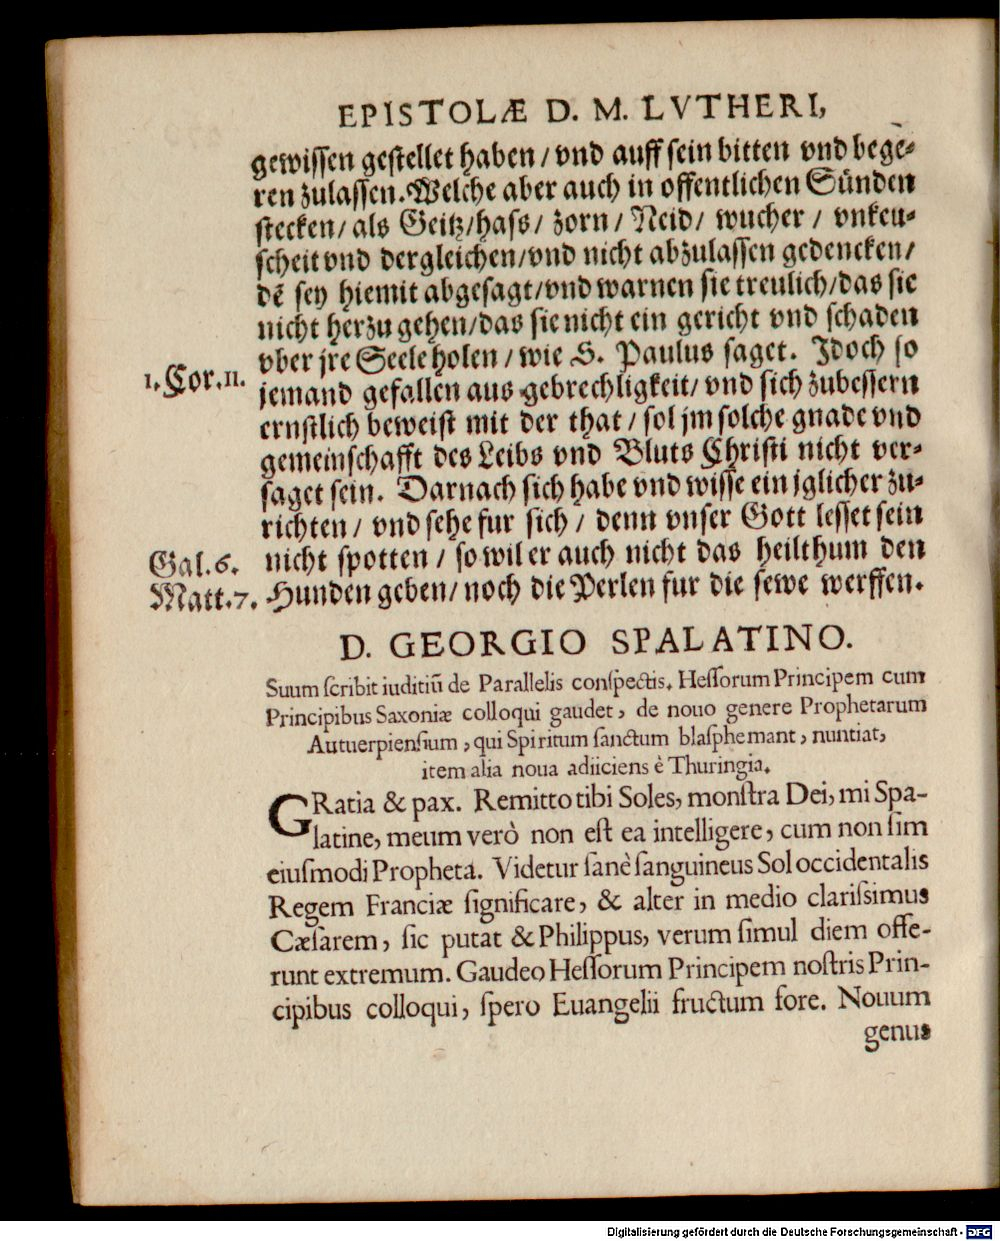 EPISTOLÆ D. M. LVTHERI,
gewiſſen geſtellet haben / vnd auff ſein bitten vnd bege-
ren zulaſſen. Welche aber auch in offentlichen Sünden
ſtecken / als Geitz / haſs / zorn / Neid / wucher / vnkeu-
ſcheit vnd dergleichen / vnd nicht abzulaſſen gedencken /
dē ſey hiemit abgeſagt / vnd warnen ſie treulich / das ſie
nicht herzu gehen / das ſie nicht ein gericht vnd ſchaden
vber jre Seele holen / wie S. Paulus ſaget. Jdoch ſo
1. Cor. 11.
jemand gefallen aus gebrechligkeit / vnd ſich zubeſſern
ernſtlich beweiſt mit der that / ſol jm ſolche gnade vnd
gemeinſchafft des Leibs vnd Bluts Chriſti nicht ver-
ſaget ſein. Darnach ſich habe vnd wiſſe ein jglicher zu-
richten / vnd ſehe fur ſich / denn vnſer Gott leſſet ſein
Gal. 6.
nicht ſpotten / ſo wil er auch nicht das heilthum den
Matt. 7.
Hunden geben / noch die Perlen fur die ſewe werffen.
D. GEORGIO SPALATINO.
Suum ſcribit iuditiū de Parallelis conſpectis. Heſſorum Principem cum
Principibus Saxoniæ colloqui gaudet, de nouo genere Prophetarum
Autuerpienſium, qui Spiritum ſanctum blaſphemant, nuntiat,
item alia noua adiiciens è Thuringia.
GRatia & pax. Remitto tibi Soles, monſtra Dei, mi Spa-
latine, meum verò non eſt ea intelligere, cum non ſim
eiuſmodi Propheta. Videtur ſanè ſanguineus Sol occidentalis
Regem Franciæ ſignificare, & alter in medio clariſsimus
Cæſarem, ſic putat & Philippus, verum ſimul diem offe-
runt extremum. Gaudeo Heſſorum Principem noſtris Prin-
cipibus colloqui, ſpero Euangelii fructum fore. Nouum
genus
Digitalisierung gefördert durch die Deutsche Forschungsgemeinschaft - DFG